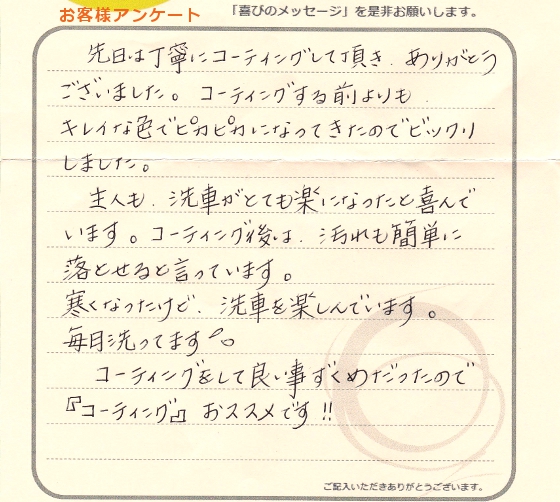 お客様アンケート 「喜びのメッセージ」を是非お願いします。
先日は丁寧にコーティングして頂き、ありがとう
ございました。コーティングする前よりも、
キレイな色でピカピカになってきたのでビックリ
しました。
主人も、洗車がとても楽になったと喜んで
います。コーティング後は、汚れも簡単に
落とせると言っています。
寒くなったけど、洗車を楽しんでいます。
毎日洗ってます
コーティングをして良い事ずくめだったので
『コーティング』おススメです!!
ご記入いただきありがとうございます。